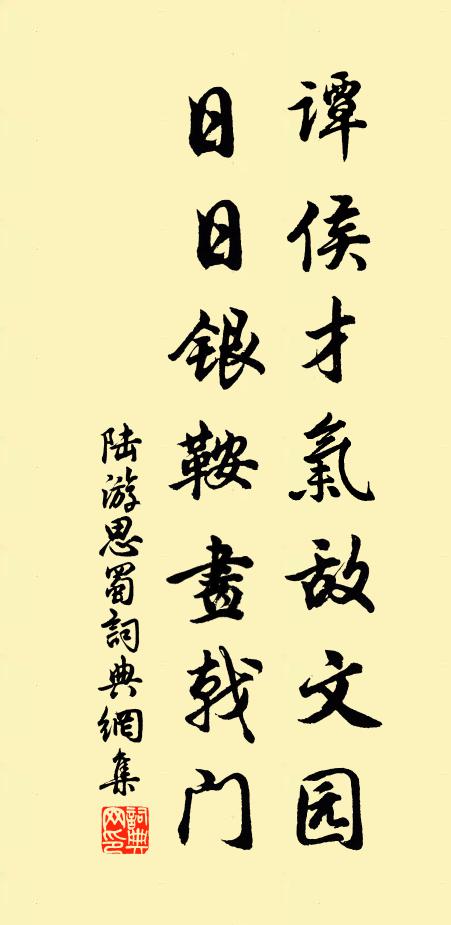 谭侯才氣敌文园
日日银鞍畫戟门
陆游思蜀詞典網集
詞典网印